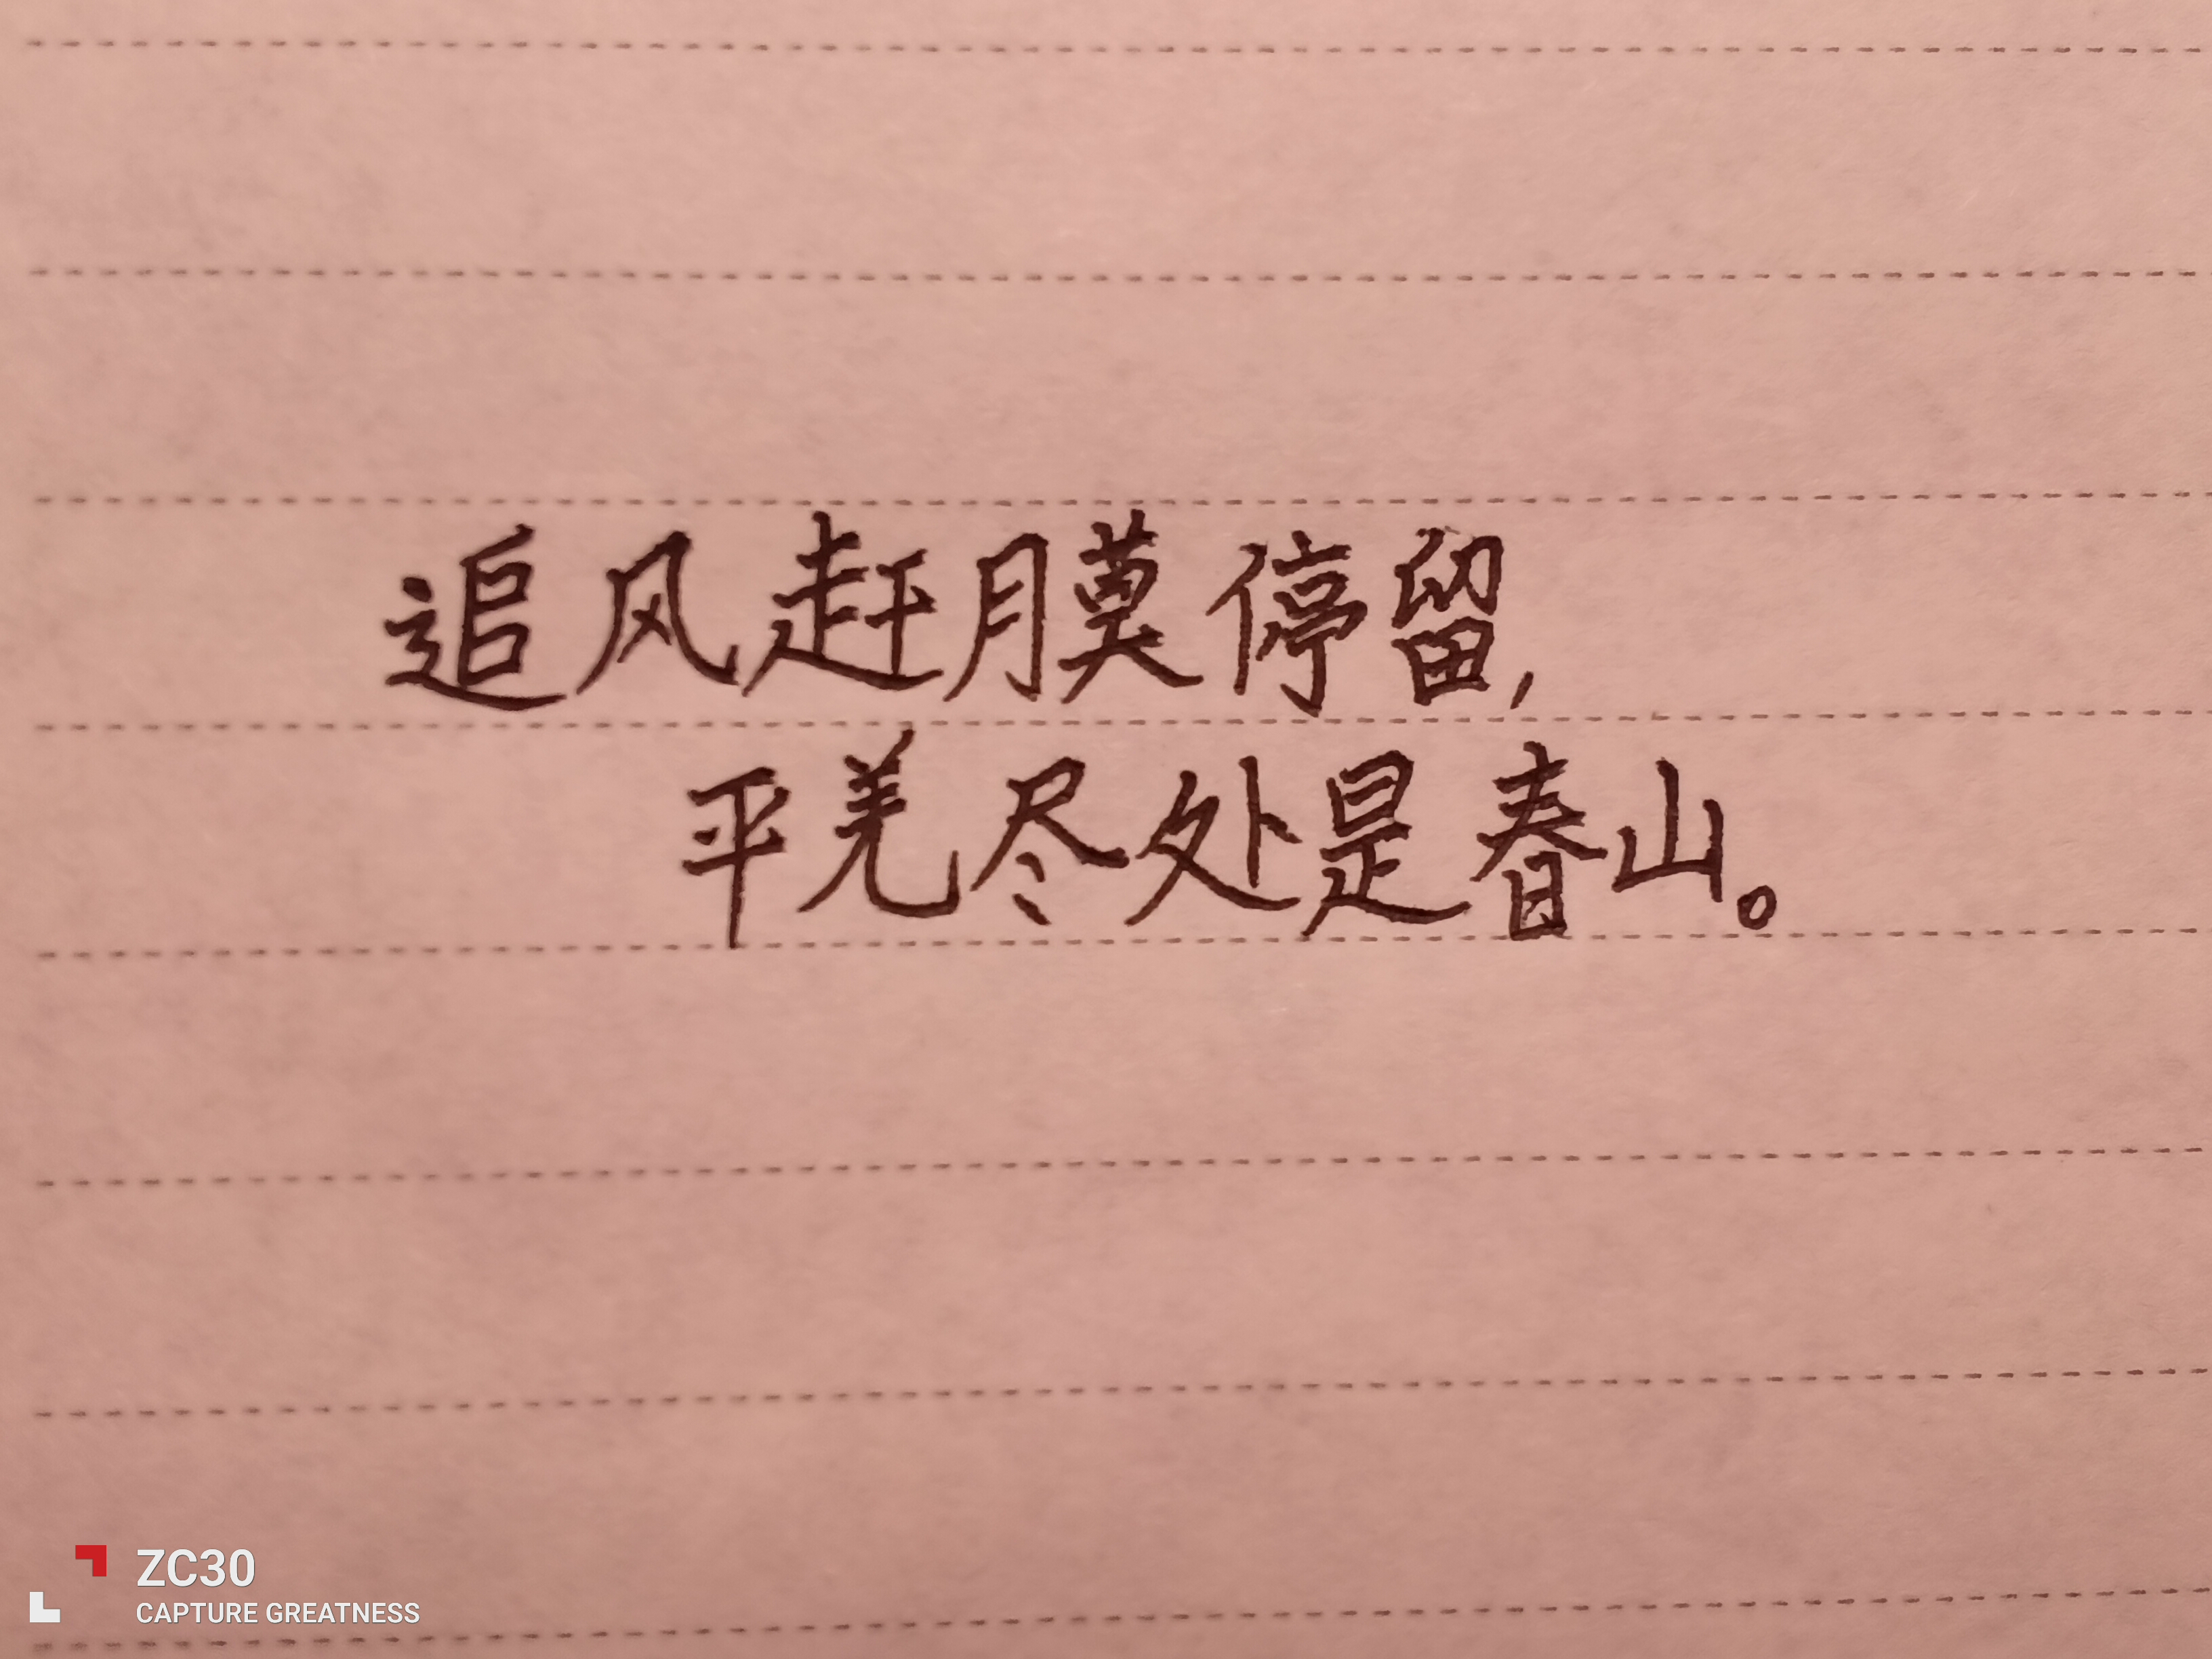 追风赶月莫停留，
平羌尽处是春山。
ZC30
CAPTURE GREATNESS